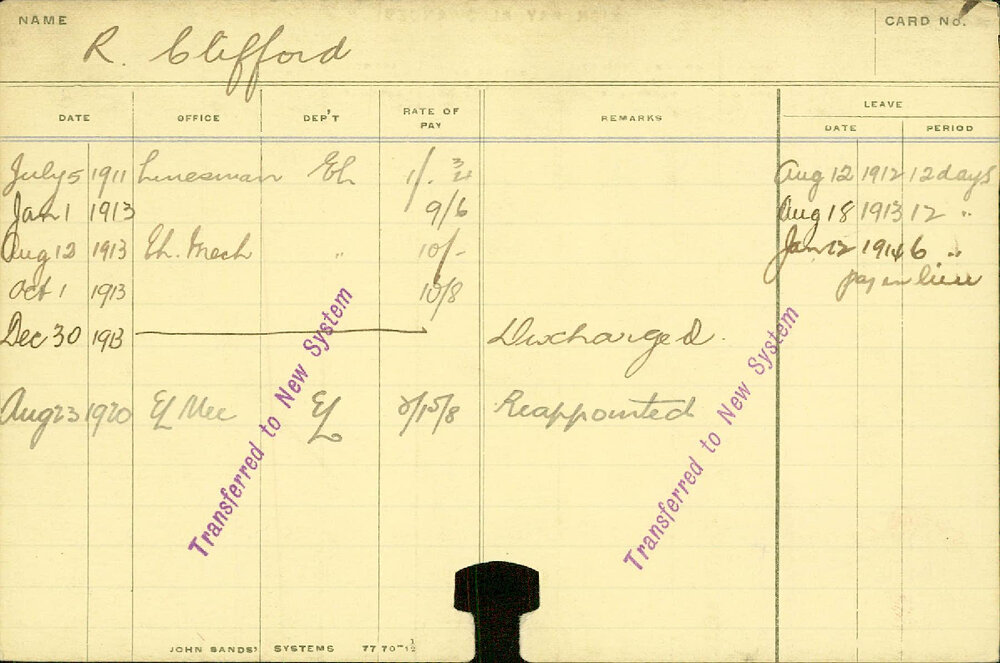 NAME
R. Clifford
CARD No.
DATE OFFICE DEP'T RATE OF PAY REMARKS LEAVE
DATE PERIOD
July 5 1911 Linesman El. 1/. Aug 12 1912 12 days
Jan 1 1913 9/6 Aug 18 1913 12 "
Aug 12 1913 El. Mech " 10/- Jan 12 1914 6 "
pay in lieu
Oct 1 1913 10/8
Dec 30 1913 Discharged.
Aug 23 1920 El Mec El /15/8 Reappointed
Transferred to New System
Transferred to New System
JOHN SANDS' SYSTEMS 77 70-